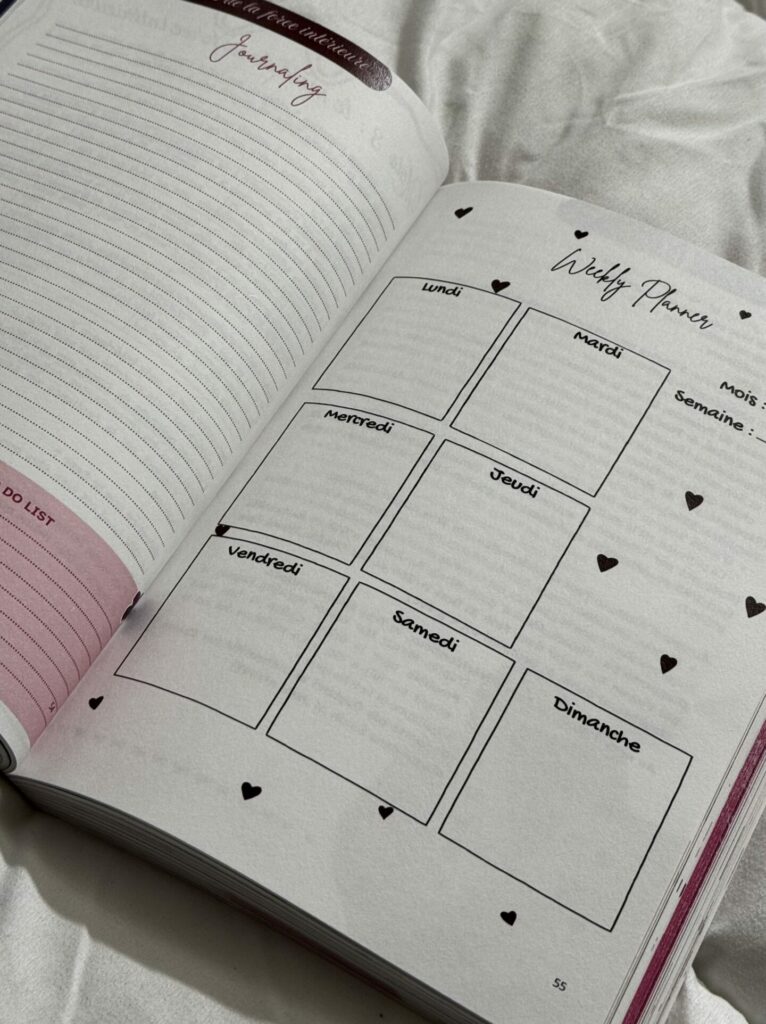 de la force intérieure
Journaling
DO LIST
Weekly Planner
Mois :
Semaine : _
Lundi
Mardi
Mercredi
Jeudi
Vendredi
Samedi
Dimanche
55